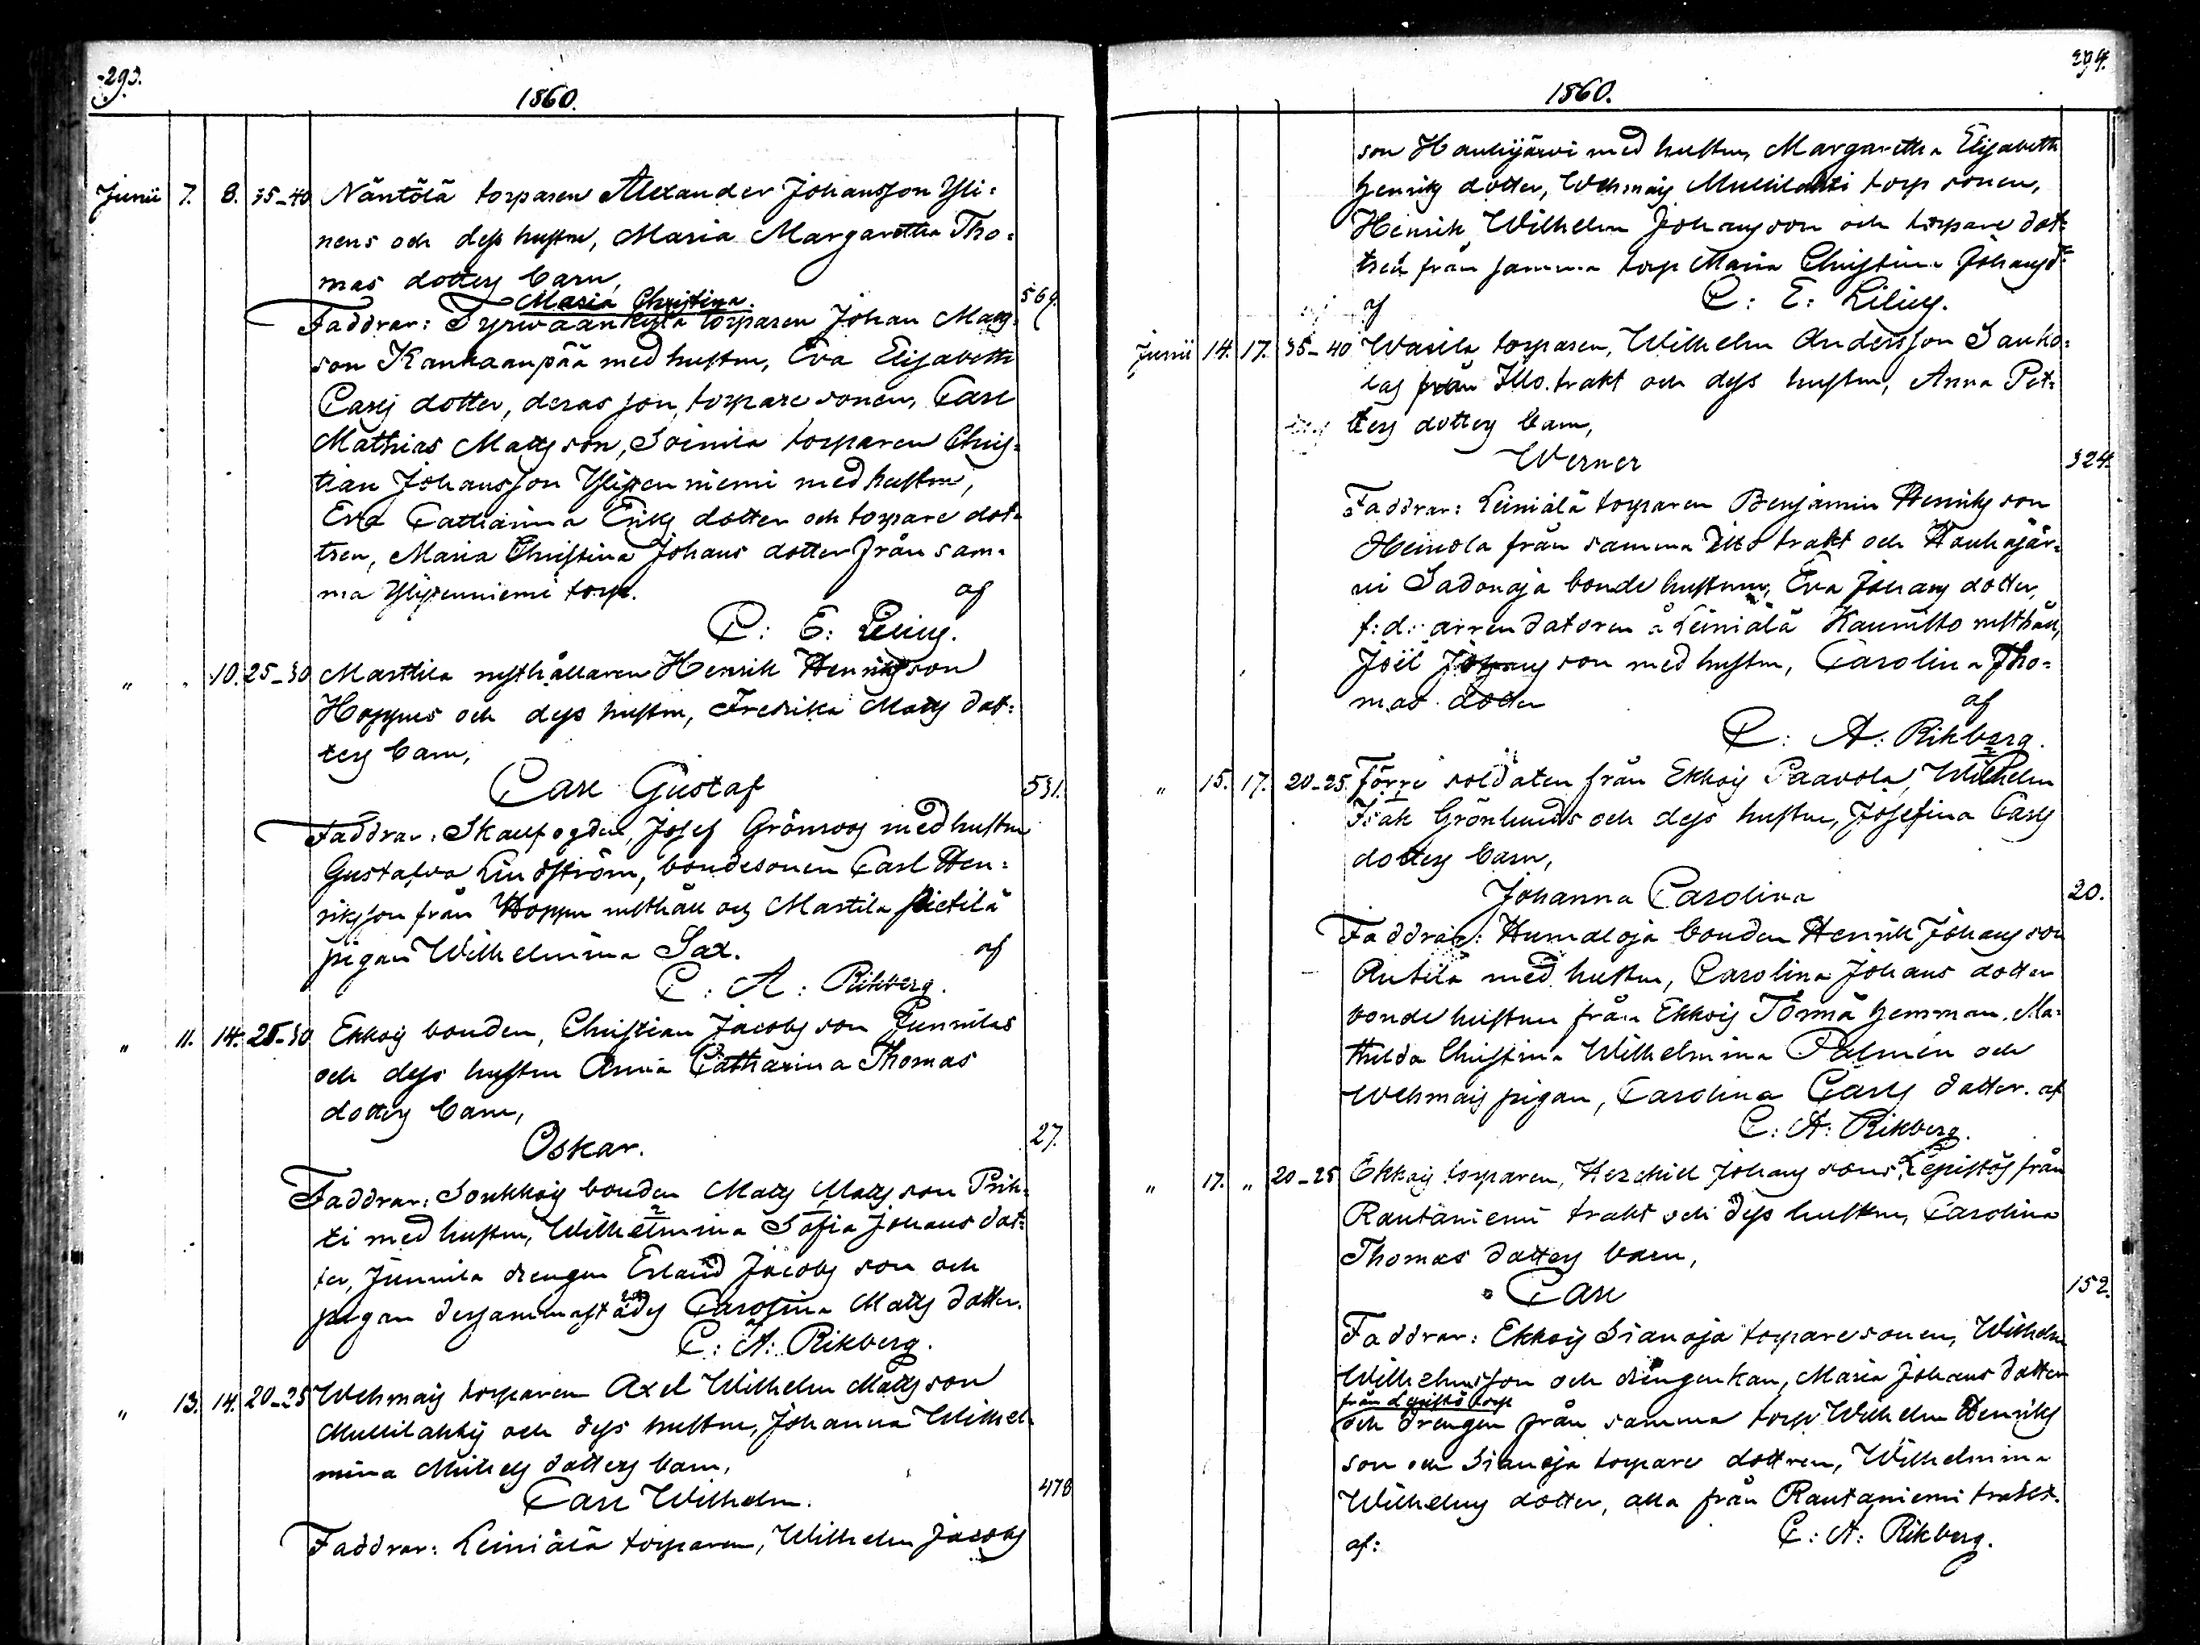 293.
1860.
Junii 7. 8. 35-40 Näntölä torparen Alexander Johansson Yli=
nens och dess hustru, Maria Margaretha Tho=
mas dotters barn,
Maria Christina. 569.
Faddrar: Tyrwäänkylä torparen Johan Matts
son Kankaanpää med hustru, Eva Elisabeth
Carls dotter, deras son, torpare sonen, Carl
Mathias Matts son, Soinila torparen Chris=
tian Johansson Ylipenniemi med hustru,
Eva Catharina Eriks dotter och torpare dot=
tren, Maria Christina Johans dotter från sam=
ma Ylipenniemi torp. af
C: E: Lilius.
" " 10. 25-30 Marttila rusthållaren Henrik Henriksson
Hoppus och dess hustru, Fredrika Matts dot=
ters barn,
Carl Gustaf 531.
Faddrar: Skallfogden, Josef Grönroos med hustru
Gustafva Lindström, bondesonen Carl Hen=
riksson från Hoppu rusthåll och Martila Pietilä
pigan Wilhelmina Sax. af
C: A: Rikberg.
" 11. 14. 25-30 Ekkois bonden, Christian Jacobs son Junnilas
och dess hustru Anna Catharina Thomas
dotters barn,
Oskar. 27.
Faddrar: Sonkkois bonden Matts Matts son Prih=
ti med hustru, Wilhelmina Sofia Johans dot=
ter, Junnila drengen Erland Jacobs son och
pigan dersammastädes Carolina Matts dotter.
af
C: A: Rikberg.
" 13. 14. 20-25 Wehmais torparen Axel Wilhelm Matts son
Mullilahtis och dess hustru, Johanna Wilhel
mina Michels dotters barn,
Carl Wilhelm. 478
Faddrar: Leiniälä torparen, Wilhelm Jacobs
294.
1860.
son Hauhijärvi med hustru, Margaretha Elisabeth
Henriks dotter, Wehmais Mullilahti torp sonen,
Henrik Wilhelm Johansson och torpare dot=
tren från samma torp Maria Christina Johansd:
af C: E: Lilius.
Junii 14. 17. 35-40 Warila torparen, Wilhelm Andersson Sauko=
las från Illo trakt och dess hustru, Anna Pet=
ters dotters barn,
Werner 324.
Faddrar: Leiniälä torparen Benjamin Henriks son
Heinola från samma Illo trakt och Kauhajär=
vi Sadonoja bonde hustrun, Eva Johans dotter,
f:d: arrendatoren å Leiniälä Kaunisto rusthåll,
Joël Johans son med hustru, Carolina Tho=
mas dotter af
C: A: Rikberg.
" 15. 17. 20-25. Förre soldaten från Ekkois Paavola, Wilhelm
Isak Grönlunds och dess hustru, Josefina Carls
dotters barn,
Johanna Carolina 20.
Faddrar: Humaloja bonden Henrik Johans son
Antila med hustru, Carolina Johans dotter
bonde hustrun från Ekkois Tömä hemman, Ma=
thilda Christina Wilhelmina Palmén och
Wehmais pigan, Carolina Carls dotter. af
C: A: Rikberg.
" 17. " 20-25 Ekkois torparen, Hezekiel Johans sons, Lepistös från
Rautaniemi trakt och dess hustru, Carolina
Thomas dotters barn,
Carl 152.
Faddrar: Ekkois Sianoja torparesonen, Wilhelm
Wilhelmsson och drengenkan, Maria Johans dotter
från Lepistö torp
och drengen från samma torp Wilhelm Henriks
son och Sianoja torpare dottren, Wilhelmina
Wilhelms dotter, alla från Rautaniemi trakt.
af: C: A: Rikberg.